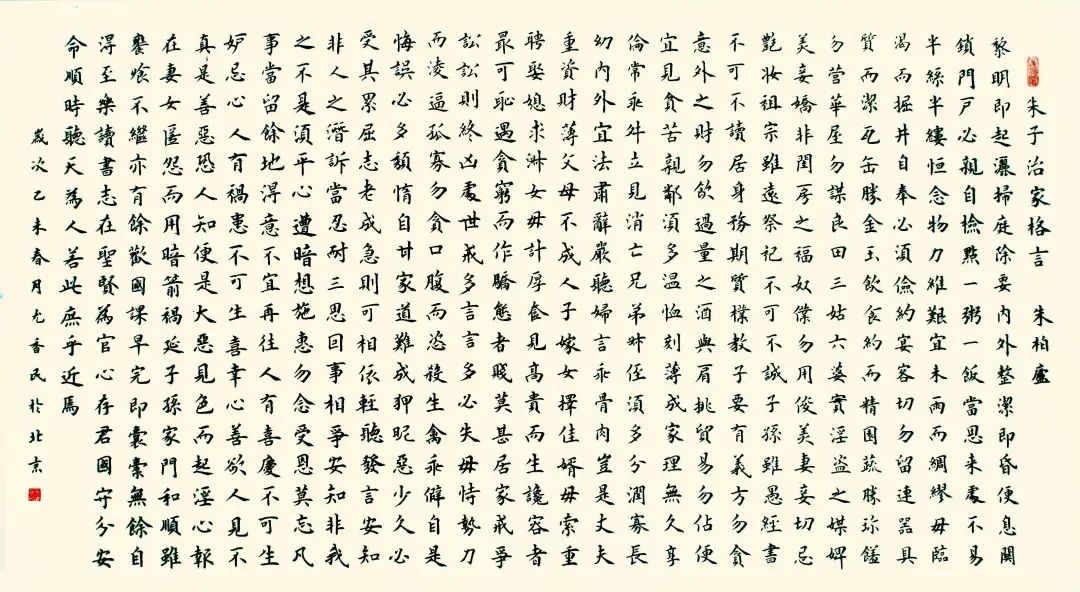 朱子治家格言 朱柏廬
黎明即起灑掃庭除要內外整潔即昏便息關
鎖門戶必親自檢點一粥一飯當思来處不易
半絲半縷恒念物力維艱宜未雨而綢繆毋臨
渴而掘井自奉必須儉約宴客切勿留連器具
質而潔瓦缶勝金玉飲食約而精園蔬勝珍饈
勿營華屋勿謀良田三姑六婆實淫盜之媒婢
美妾嬌非閨房之福奴僕勿用俊美妻妾切忌
艷妝祖宗雖遠祭祀不可不誠子孫雖愚經書
不可不讀居身務期質樸教子要有義方勿貪
意外之財勿飲過量之酒與肩挑貿易勿佔便
宜見貧苦親鄰須多溫恤刻薄成家理無久享
倫常乖舛立見消亡兄弟叔侄須多分潤寡長
幼內外宜法肅辭嚴聽婦言乖骨肉豈是丈夫
重資財薄父母不成人子嫁女擇佳婿毋索重
聘娶媳求淑女毋計厚奩見富貴而生諂容者
最可恥遇貧窮而作驕態者賤莫甚居家戒爭
訟訟則終凶處世戒多言言多必失毋恃勢力
而淩逼孤寡勿貪口腹而恣殺生禽乖僻自是
悔誤必多頹惰自甘家道難成狎昵惡少久必
受其累屈志老成急則可相依輕聽發言安知
非人之譖訴當忍耐三思因事相爭安知非我
之不是須平心遭暗想施惠勿念受恩莫忘凡
事當留餘地得意不宜再往人有喜慶不可生
妒忌心人有禍患不可生喜幸心善欲人見不
真是善惡恐人知便是大惡見色而起淫心報
在妻女匿怨而用暗箭禍延子孫家門和順雖
饔飧不繼亦有餘歡國課早完即囊橐無餘自
得至樂讀書志在聖賢為官心存君國守分安
命順時聽天為人若此庶乎近焉
歲次乙未春月尤香民於北京